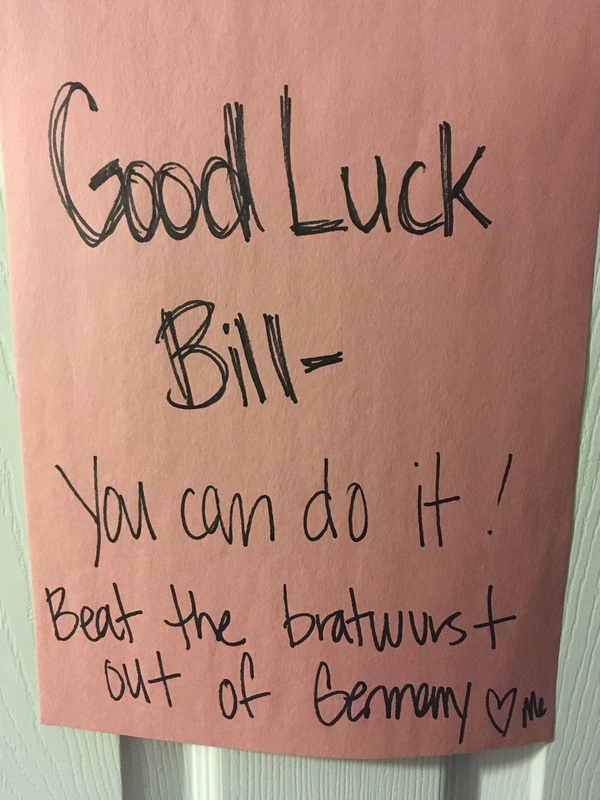 Good Luck
Bill-
You can do it!
Beat the bratwurst
out of Germany ♡ Me